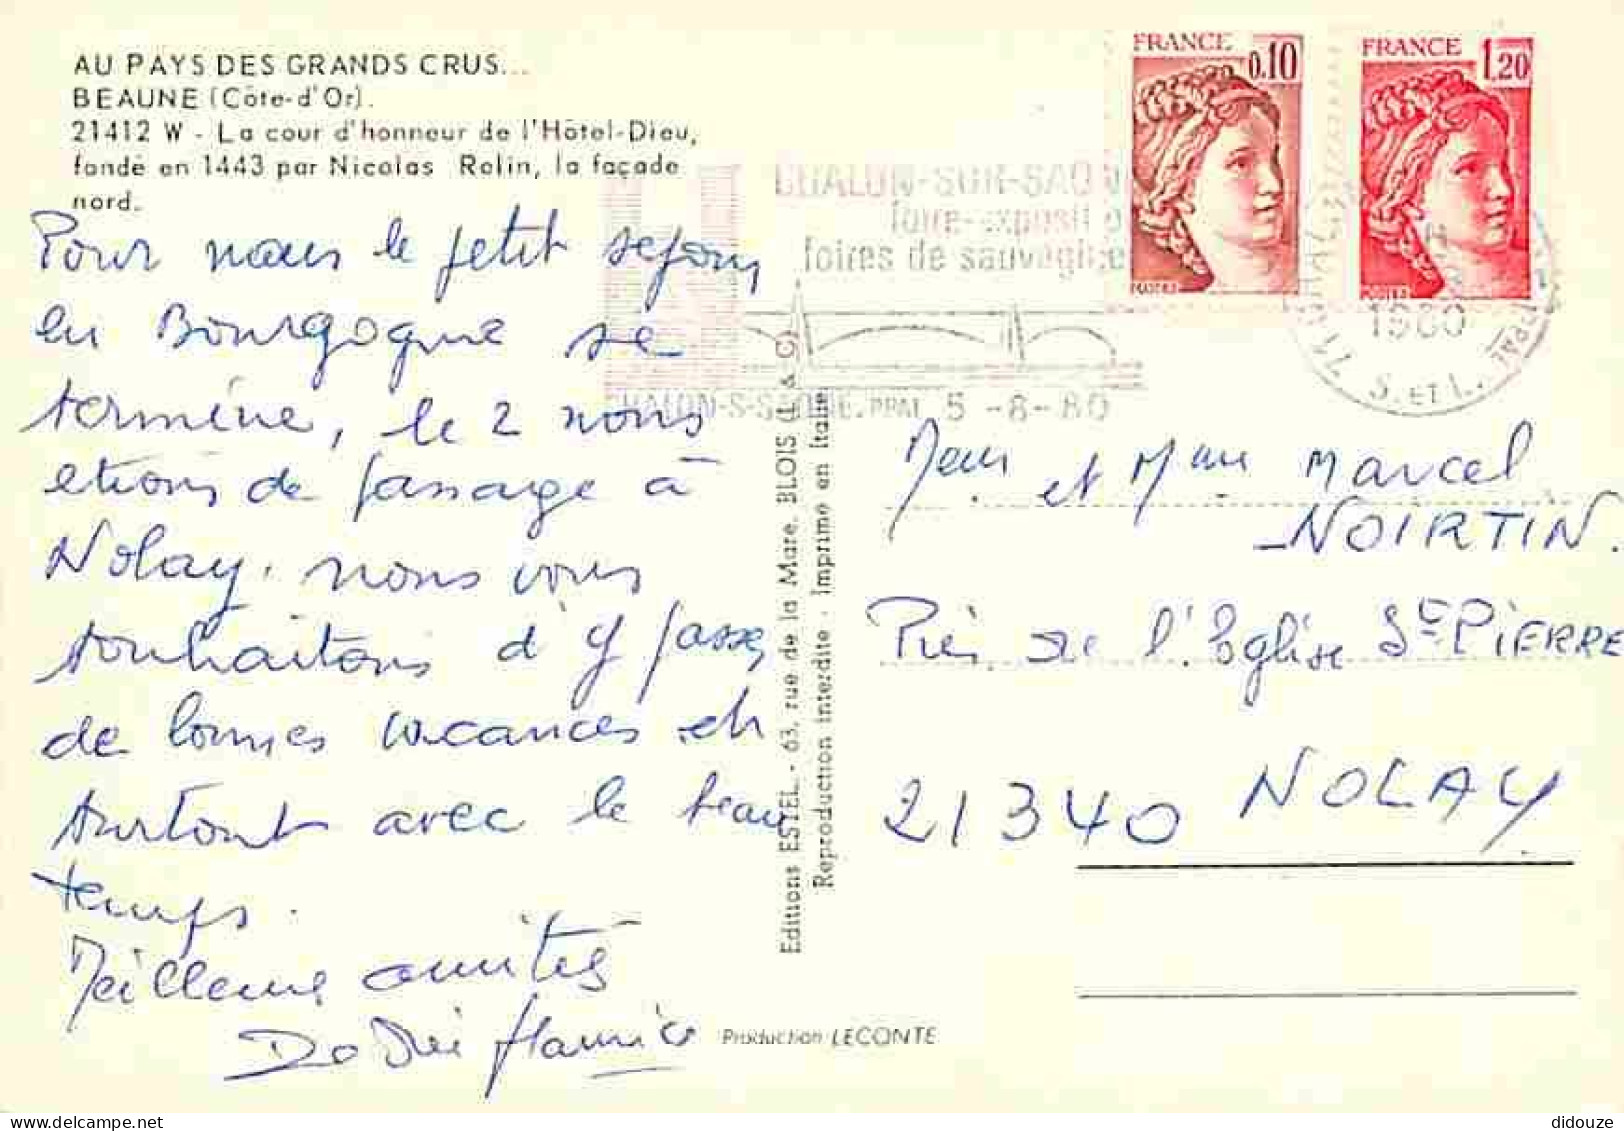 AU PAYS DES GRANDS CRUS...
BEAUNE (Côte-d'Or).
21412 W - La cour d'honneur de l'Hôtel-Dieu,
fondé en 1443 par Nicolas Rolin, la façade
nord.
Pour nous le petit sejour
en Bourgogne se
termine, le 2 nous
etions de passage à
Nolay. nous vous
souhaitons d'y passer
de bonnes vacances et
surtout avec le beau
temps.
Meilleures amitiés
FRANCE
0.10
POSTES
FRANCE
1.20
POSTES
CHALON-SUR-SAON
foire-exposition
foires de sauvagine
CHALON-S-SAONE.PPAL 5 -8-80
1980
71 S. ET L.
PPAL
Editions ESTEL - 63, rue de la Mare. BLOIS (L & C)
Reproduction interdite - Imprimé en Italie
Meur et Mme Marcel
NOIRTIN.
Près de l'Eglise St PIERRE
21340 NOLAY
Production LECONTE
didouze